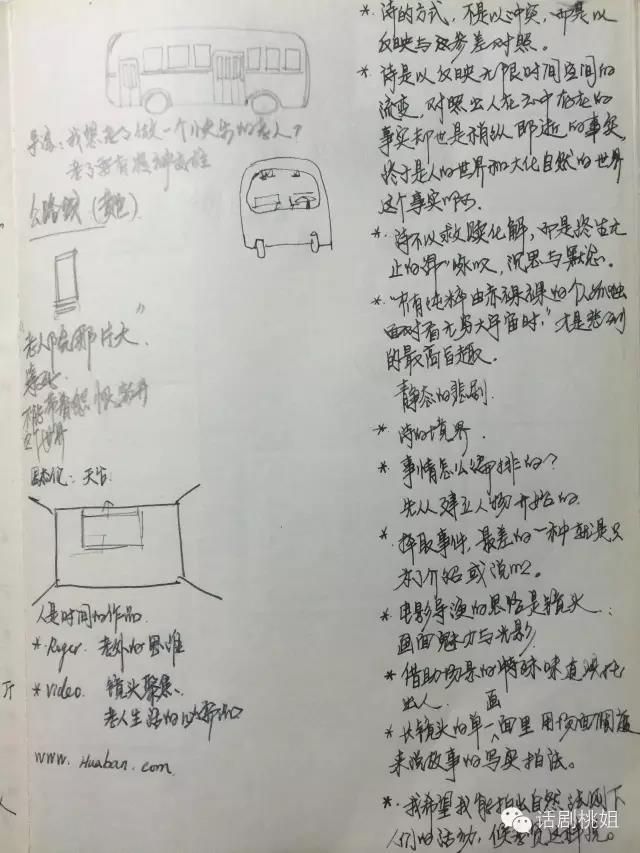 导演：我想老了做一个
老了要有精神
公路戏（黄色）
"老人院那片天"
等死
不能带着怨恨离开
这个世界
天台
人是时间的作品
*. Roger. 老外的思维
*. video. 镜头聚焦、
老人生活的
www.Huaban.com
*. 诗的方式，不是以冲突，而是以
反映与参差对照。
*. 诗是以反映无限时间空间的
流变，对照出人在之中存在的
事实却也是稍纵即逝的事实
终于是人的世界和大化自然的世界
这个事实啊。
*. 诗不以救赎化解，而是终生无
止的咏叹，沉思与默念。
*. "有纯粹由赤裸裸的个人孤独
面对着无穷大宇宙时"，才是悲剧
的最高旨趣。
静态的悲剧.
* 诗的境界.
* 事情怎么编排的？
先从建立人物开始的.
* 择取事件，最差的一种就是只
为了介绍或说明。
* 电影导演的思路是镜头、
画面魅力与光影
* 借助场景的特殊味道烘托
出人.
* 长镜头的单一画面里用场面调度
来说故事的写实拍法。
*. 我希望我能拍出自然法则下
人们的活动，侯孝贤这样说。
话剧桃姐